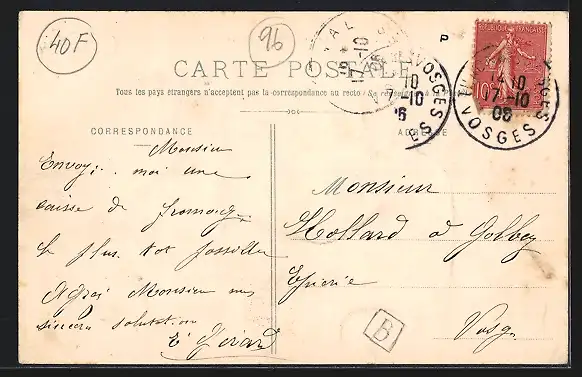 40F
96
CARTE POSTALE
Tous les pays étrangers n'acceptent pas la correspondance au recto
CORRESPONDANCE
ADRESSE
P
REPUBLIQUE FRANÇAISE
10
14 10
7-10
06
VOSGES
VOSGES
10
7-10
6
Monsieur
Envoyi moi une
caisse de fromage
le plus tot possible
Agréz Monsieur mes
sincere salutation
E Gérard
Monsieur
Hollard à Golbey
Epicerie
Vosg
B